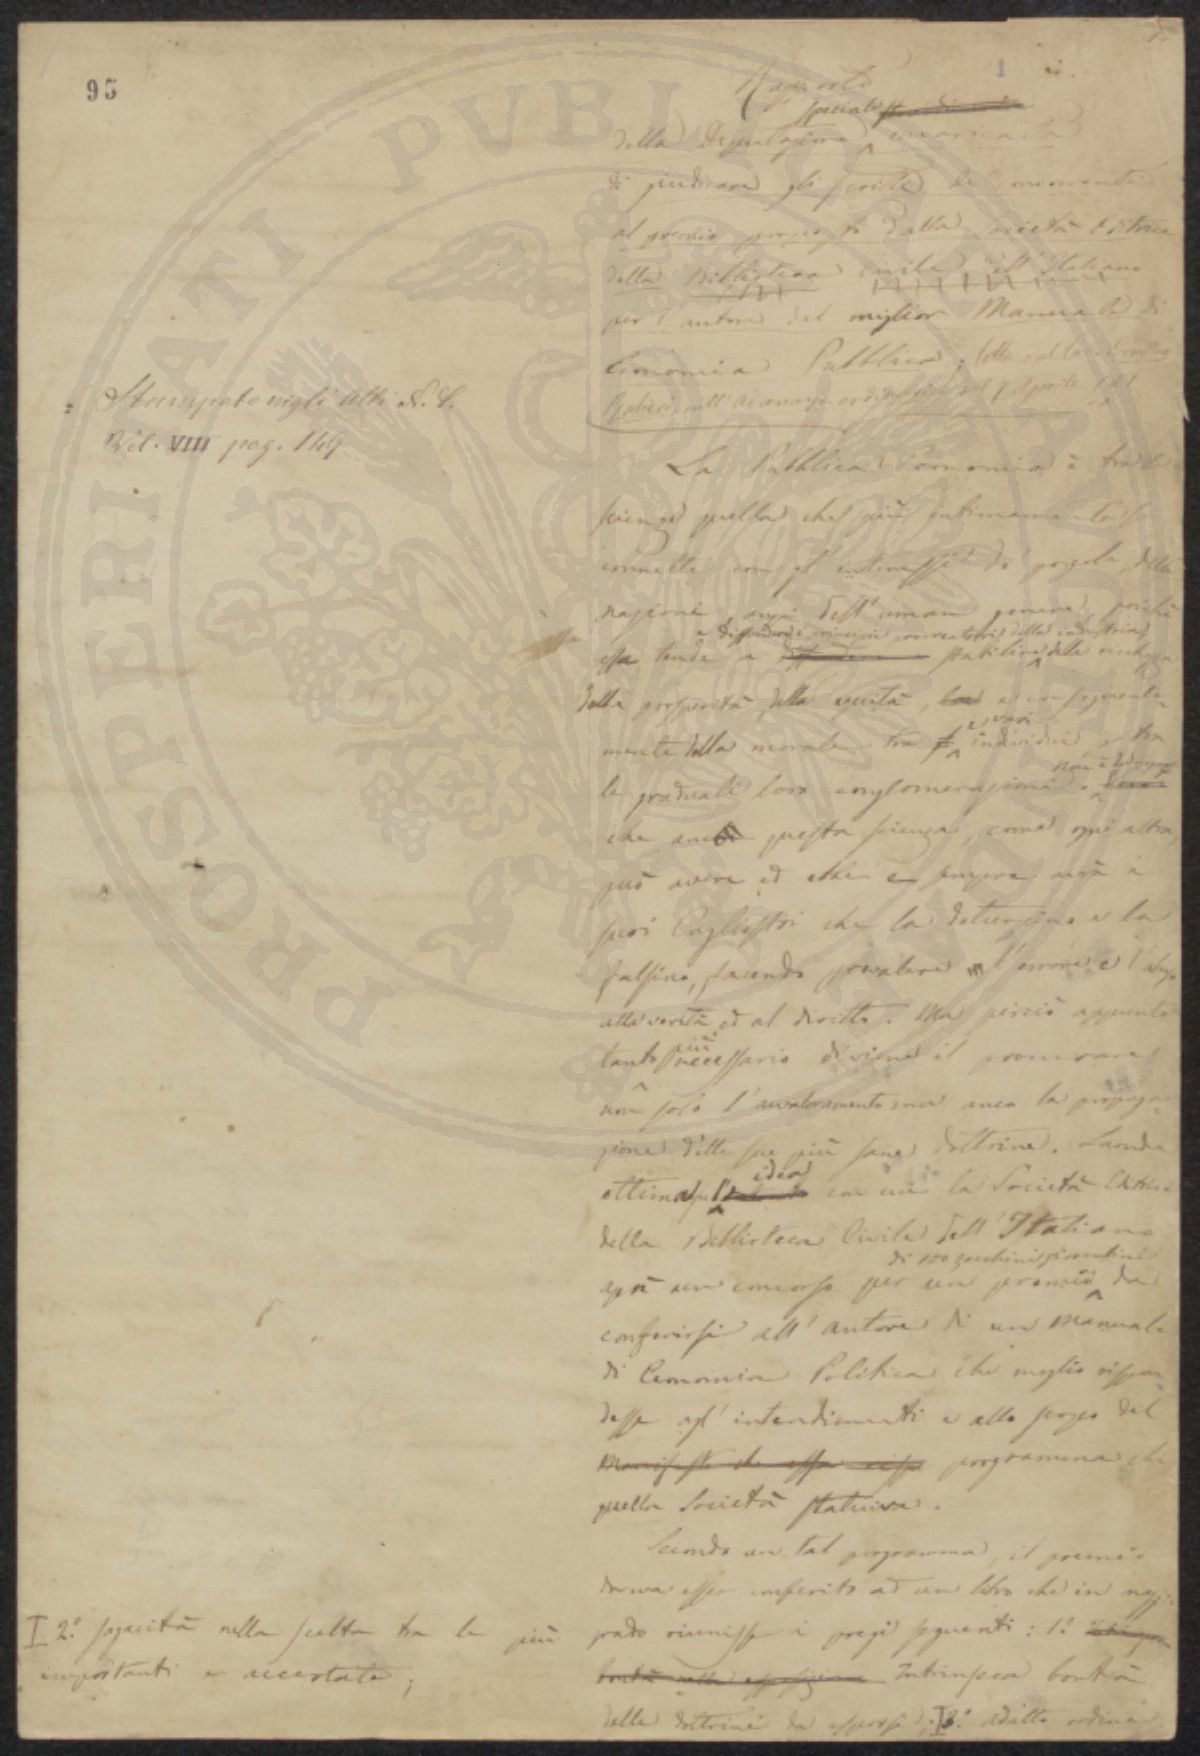 95
1
Rapporto
speciale
della Deputazione incaricata
di giudicare gli scritti de' concorrenti
al premio proposto dalla Società Editrice
della Biblioteca Civile dell'Italiano
per l'autore del miglior Manuale di
Economia Pubblica, letto dal
nell'adunanza ordinaria del Aprile
Stampato negli Atti
Vol. VIII pag. 149
La Pubblica Economia è tra le
scienze quella che più intimamente si
connette con gl'interessi de' popoli, delle
nazioni, anzi dell'uman genere, poichè
e diffondere i principii della industria,
essa tende a stabilire delle ricchezze
della prosperità, della equità, e conseguente-
mente della morale tra i vari individui e tra
le graduali loro conglomerazioni.
che anco questa scienza, come ogni altra,
può avere ed ebbe e sempre avrà i
suoi Cagliostri che la deturpino e la
falsino, facendo prevalere l'errore e l'abuso
alla verità ed al diritto. Ma perciò appunto
tanto più necessario diviene il procurare
non solo l'avvaloramento ma anco la propaga-
zione delle sue più sane dottrine. Laonde
ottima fu l'idea con cui la Società Editrice
della Biblioteca Civile dell'Italiano
di 100 zecchini fiorentini
aprì un concorso per un premio da
conferirsi all'autore di un Manuale
di Economia Politica che meglio rispon-
desse agl'intendimenti e allo scopo del
Manifesto che essa programma che
quella Società statuiva.
Secondo un tal programma, il premio
doveva esser conferito ad un libro che in
grado riunisse i pregi seguenti: 1.°
bontà nella esposizione Intrinseca bontà
delle dottrine da esporsi; 3.° adatto ordine
I 2.° sagacità nella scelta tra le più
importanti e accertate;
PROSPERITATI PVBLICAE AVGENDAE